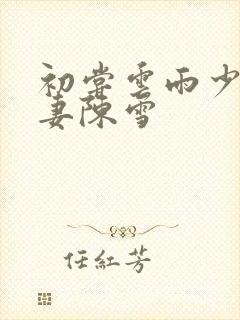 初尝雲雨少
妻陳雪
任紅芳